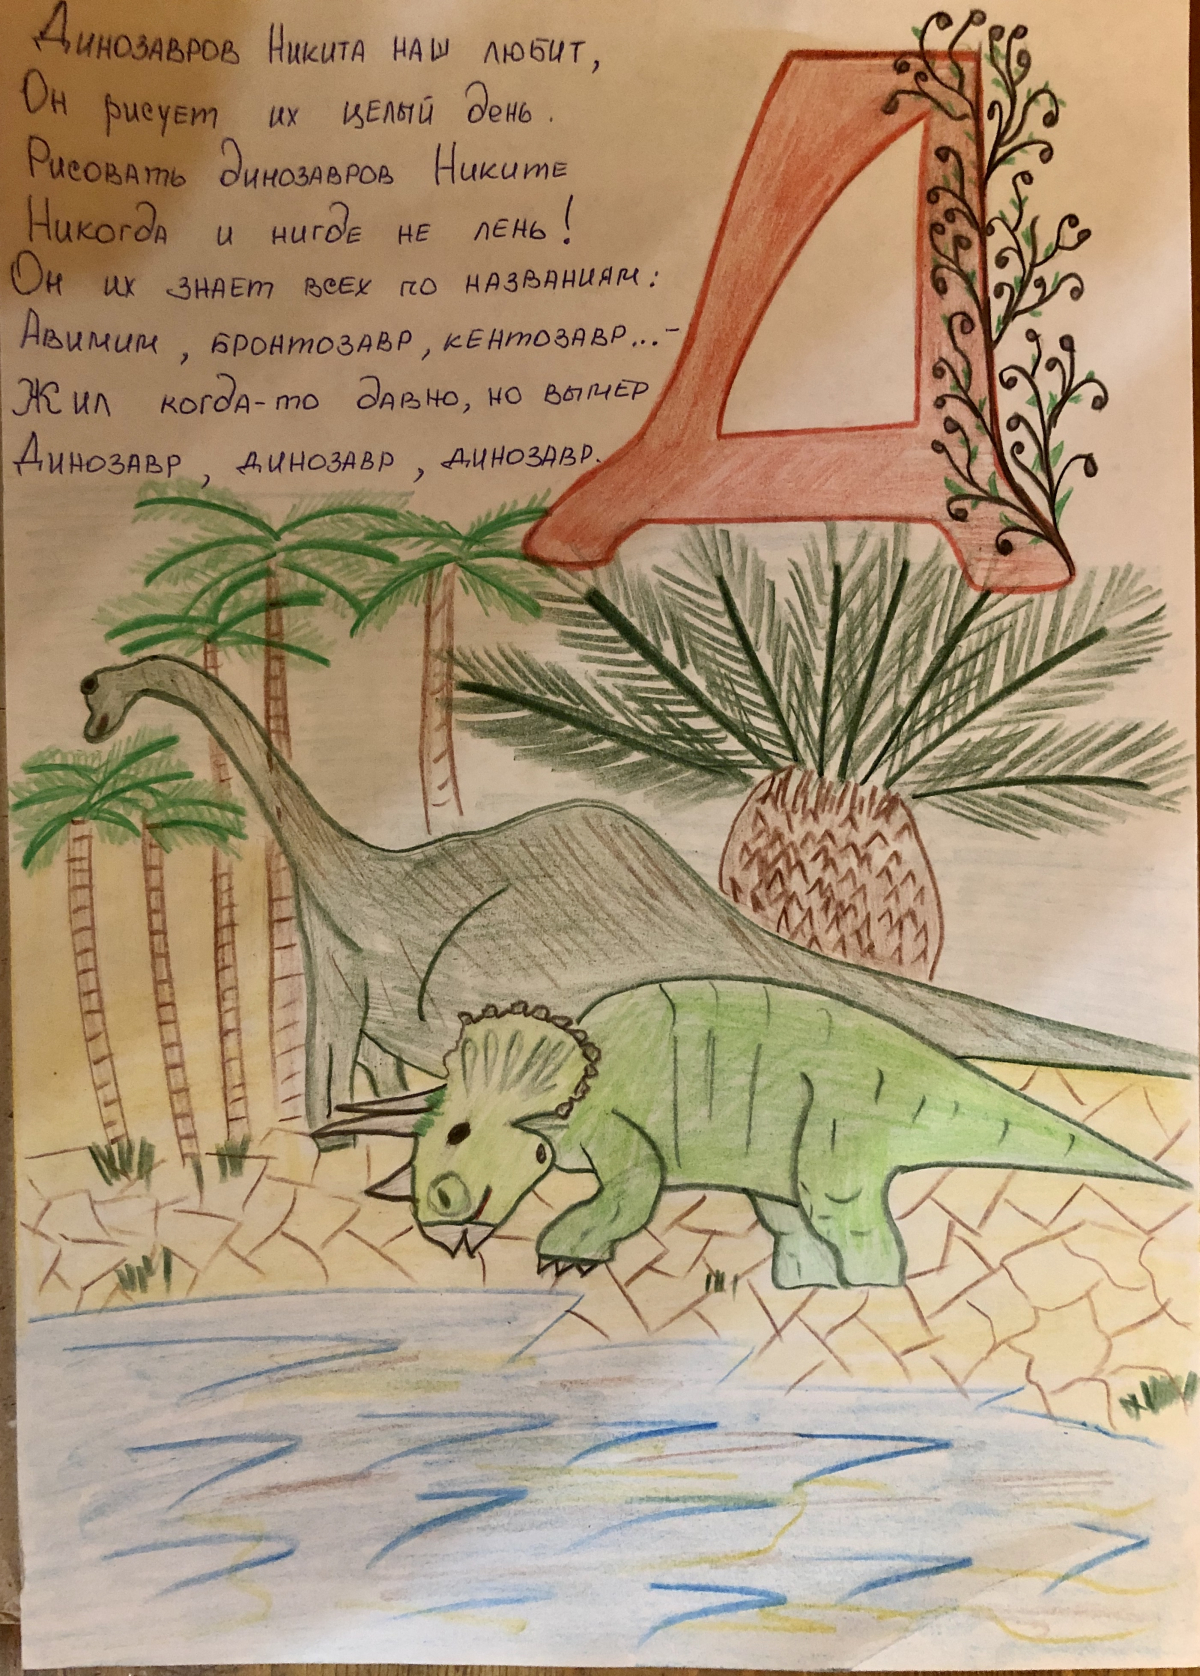 Динозавров Никита наш любит,
Он рисует их целый день.
Рисовать динозавров Никите
Никогда и нигде не лень!
Он их знает всех по названиям:
Авимим, бронтозавр, кентозавр...-
Жил когда-то давно, но вымер
Динозавр, динозавр, динозавр.
Д